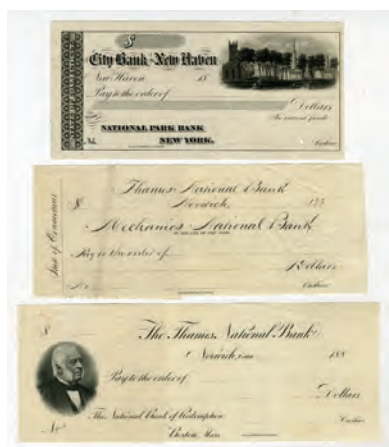 $
City Bank of New Haven
New Haven 18
Pay to the order of
Dollars
In current funds
NATIONAL PARK BANK
NEW YORK.
Cashier
State of Connecticut
$
Thames National Bank
Norwich, 188
Mechanics National Bank
OF THE CITY OF NEW YORK
Pay to the order of
Dollars
No.
Cashier
$
The Thames National Bank
Norwich, Conn 188
Pay to the order of
Dollars
The National Bank of Redemption
Cashier
Boston, Mass
No.